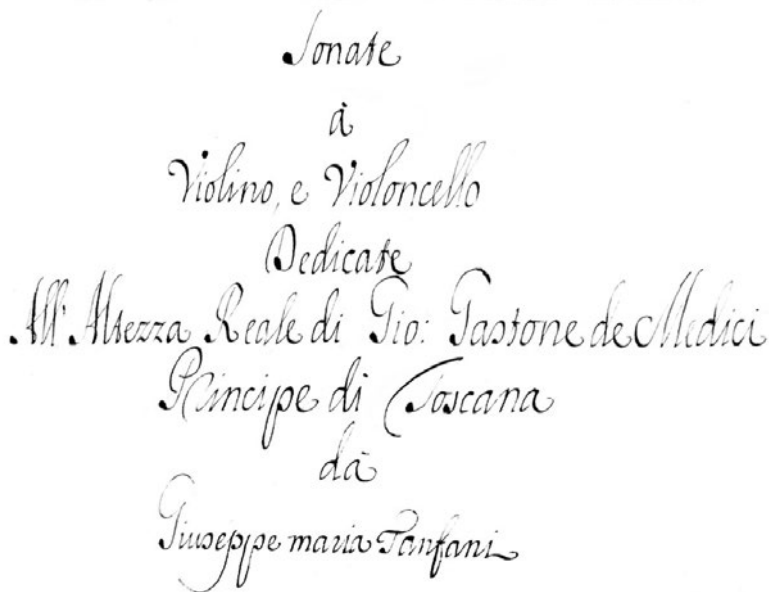 Sonate
à
Violino, e Violoncello
Dedicate
All' Altezza Reale di Gio: Gastone de Medici
Principe di Toscana
dà
Giuseppe maria Fanfani